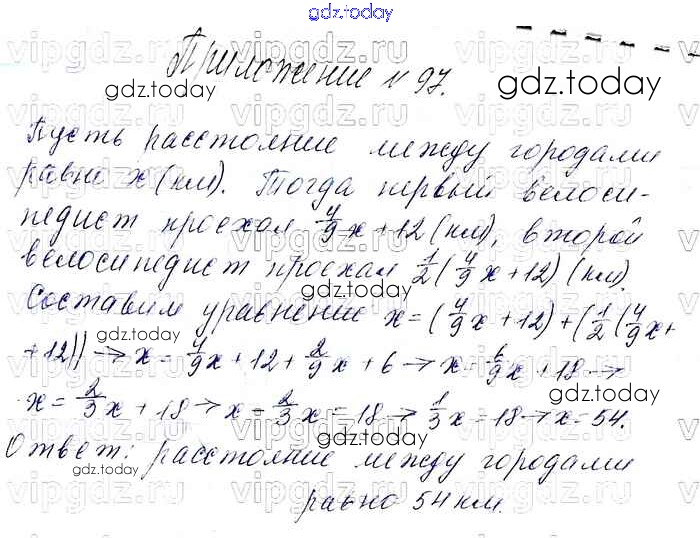 gdz.today
Приложение N 97.
Пусть расстояние между городами
равно x (км). Тогда первый велоси-
педист проехал 4/9x + 12 (км), второй
велосипедист проехал 1/2(4/9x + 12) (км).
Составим уравнение x = (4/9x + 12) + (1/2(4/9x +
+ 12)) → x = 4/9x + 12 + 2/9x + 6 → x = 6/9x + 18 →
x = 2/3x + 18 → x - 2/3x = 18 → 1/3x = 18 → x = 54.
Ответ: расстояние между городами
равно 54 км.